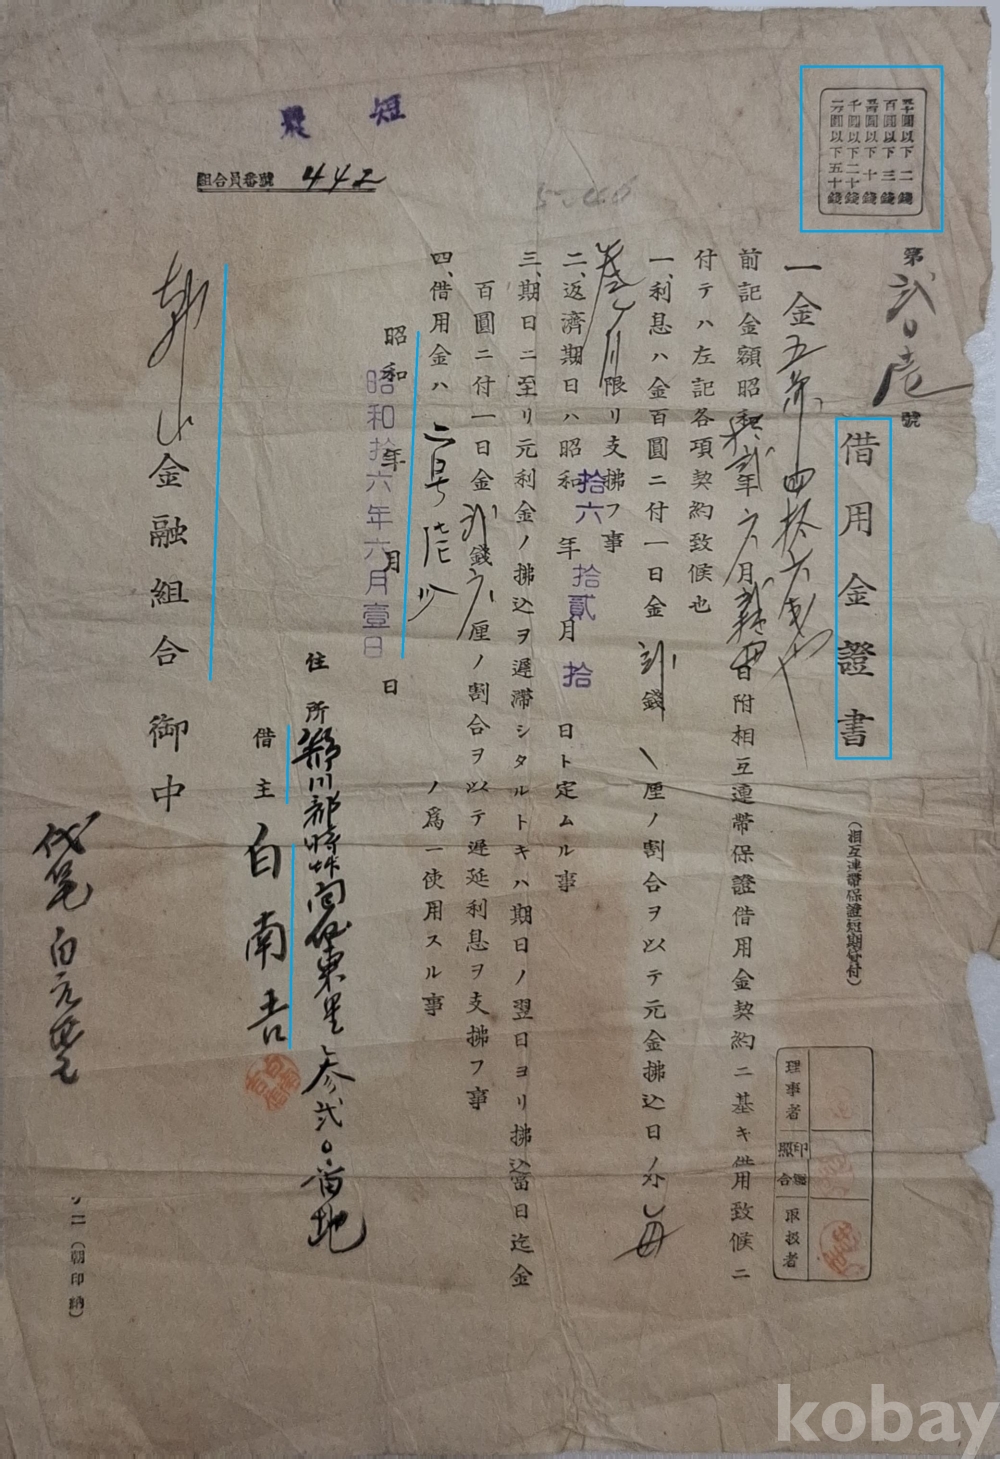 五十圓以下 二錢
百圓以下 三錢
五百圓以下 十錢
千圓以下 二十錢
一万圓以下 五十錢
短
組合員番號 442
第 號
借用金證書
(相互連帶保證短期貸付)
一金五
前記金額昭和 年六月 日附相互連帶保證借用金契約ニ基キ借用致候ニ
付テハ左記各項契約致候也
一、利息ハ金百圓ニ付一日金 錢 厘ノ割合ヲ以テ元金拂込日ノ 毎
月限リ支拂フ事
二、返濟期日ハ昭和拾六年拾貳月拾日ト定ムル事
三、期日ニ至リ元利金ノ拂込ヲ遲滯シタルトキハ期日ノ翌日ヨリ拂込當日迄金
百圓ニ付一日金 錢六厘ノ割合ヲ以テ遲延利息ヲ支拂フ事
四、借用金ハ ノ爲ニ使用スル事
昭和 年 月 日
昭和拾六年六月壹日
住所 川郡時 面 東里參貳〇番地
借主 白南吉
金融組合御中
代筆 白元
理事者
印鑑照合
取扱者
(朝印納)
kobay